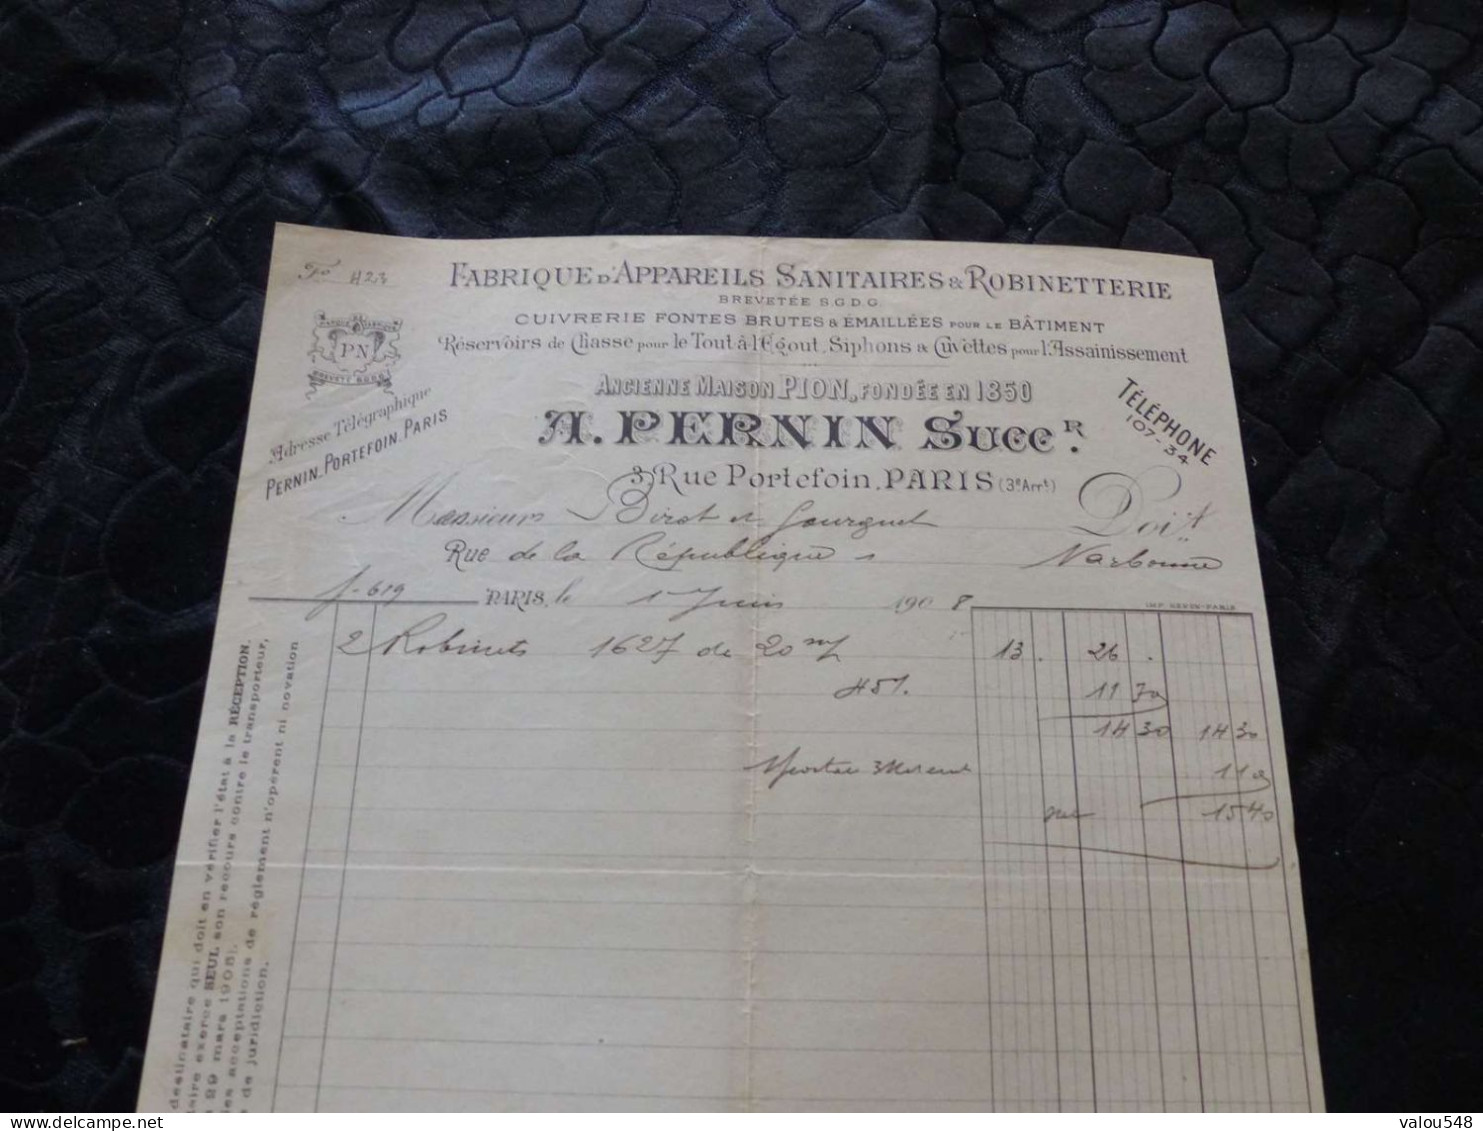 Fo 423
FABRIQUE D'APPAREILS SANITAIRES & ROBINETTERIE
BREVETÉE S.G.D.G.
CUIVRERIE FONTES BRUTES & ÉMAILLÉES POUR LE BÂTIMENT
Réservoirs de Chasse pour le Tout-à-l'Egout, Siphons & Cuvettes pour l'Assainissement
PN
BREVETÉ S.G.D.G.
ANCIENNE MAISON PION, FONDÉE EN 1850
A. PERNIN SUCCR.
3, Rue Portefoin, PARIS (3e Arrt)
Adresse Télégraphique
PERNIN_PORTEFOIN_PARIS
TÉLÉPHONE
107-34
Messieurs Birot et Gourguet Doit
Rue de la République Narbonne
f-619
PARIS, le 1 Juin 1908
IMP. NEVEN-PARIS
2 Robinets 1627 de 20 m/ 13 . 26 .
45%. 11 70
14 30 14 30
1 10
15 40
destinataire qui doit en vérifier l'état à la RÉCEPTION.
exerce SEUL son recours contre le transporteur,
29 mars 1905).
acceptations de règlement n'opèrent ni novation
de juridiction.
valou548